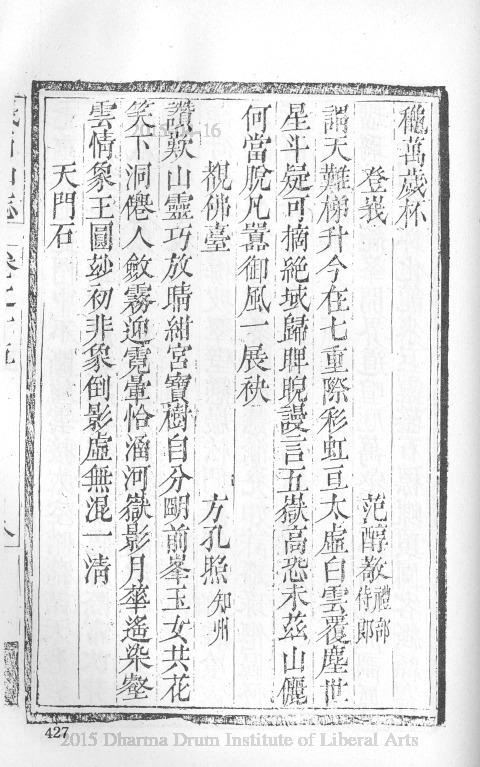 穐萬歲杯
登峩 范醇敬禮部侍郎
謂天難梯升今在七重際彩虹亘太虛白雲覆塵世
星斗疑可摘絶域歸睥睨謾言五嶽高恐未茲山儷
何當脫凡嚣御風一展袂
覩佛臺 方孔照知州
讚歎山靈巧放晴紺宮寶樹自分眀前峯玉女共花
笑下洞僊人斂霧迎霓暈恰涵河嶽影月華遙染壑
雲情象王圓玅初非象倒影虛無混一清
天門石
卷之十五
427
2015 Dharma Drum Institute of Liberal Arts